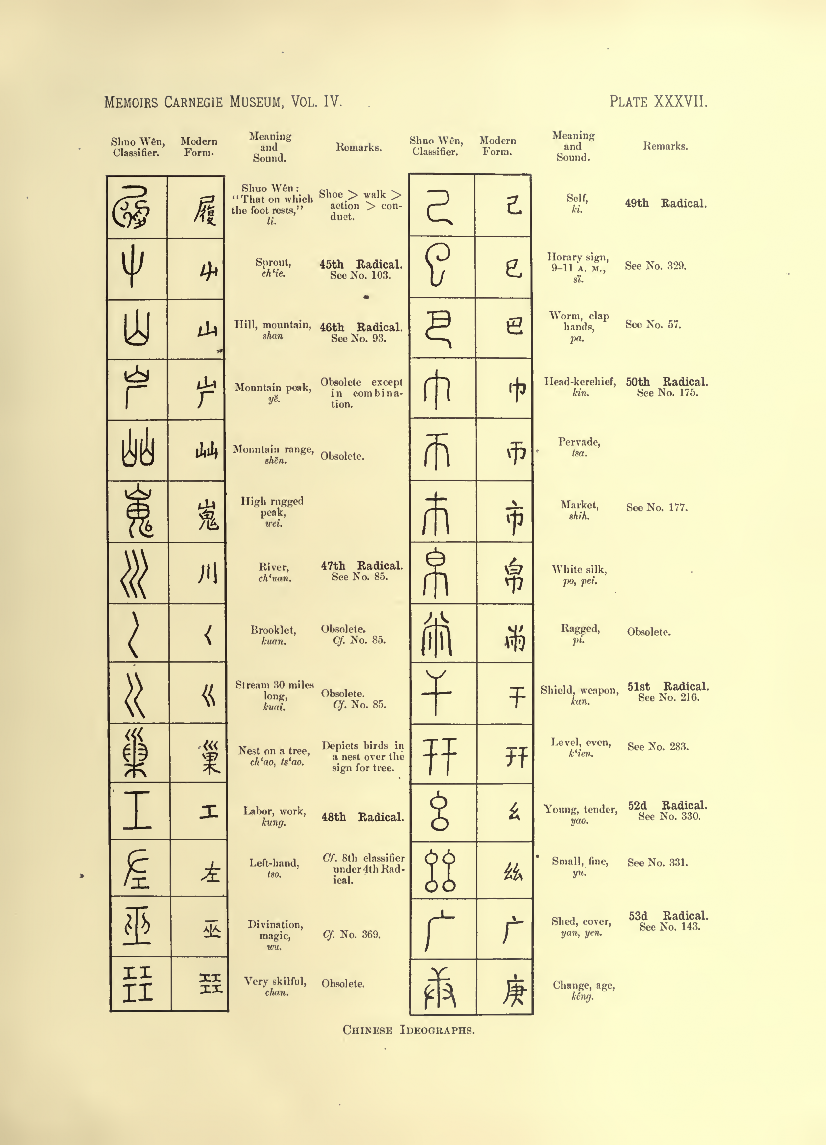 MEMOIRS CARNEGIE MUSEUM, VOL. IV.
PLATE XXXVII.
Shuo Wên, Classifier.
Modern Form.
Meaning and Sound.
Remarks.
履
Shuo Wên:
"That on which
the foot rests,"
li.
Shoe > walk >
action > con-
duct.
屮
Sprout,
ch‘ie.
45th Radical.
See No. 103.
山
Hill, mountain,
shan
46th Radical.
See No. 93.
屵
Mountain peak,
yě.
Obsolete except
in combina-
tion.
屾
Mountain range,
shên.
Obsolete.
嵬
High rugged
peak,
wei.
川
River,
ch‘uan.
47th Radical.
See No. 85.
巜
Brooklet,
kuan.
Obsolete.
Cf. No. 85.
Stream 30 miles
long,
kuai.
Obsolete.
Cf. No. 85.
巢
Nest on a tree,
ch‘ao, ts‘ao.
Depicts birds in
a nest over the
sign for tree.
工
Labor, work,
kung.
48th Radical.
左
Left-hand,
tso.
Cf. 8th classifier
under 4th Rad-
ical.
巫
Divination,
magic,
wu.
Cf. No. 369.
㠭
Very skilful,
chan.
Obsolete.
Shuo Wên, Classifier.
Modern Form.
Meaning and Sound.
Remarks.
己
Self,
ki.
49th Radical.
巳
Horary sign,
9-11 A. M.,
sï.
See No. 329.
巴
Worm, clap
hands,
pa.
See No. 57.
巾
Head-kerchief,
kin.
50th Radical.
See No. 175.
帀
Pervade,
tsa.
市
Market,
shih.
See No. 177.
帛
White silk,
po, pei.
㡀
Ragged,
pi.
Obsolete.
干
Shield, weapon,
kan.
51st Radical.
See No. 216.
幵
Level, even,
k‘ien.
See No. 283.
幺
Young, tender,
yao.
52d Radical.
See No. 330.
𢆶
Small, fine,
yu.
See No. 331.
广
Shed, cover,
yan, yen.
53d Radical.
See No. 143.
庚
Change, age,
kêng.
CHINESE IDEOGRAPHS.